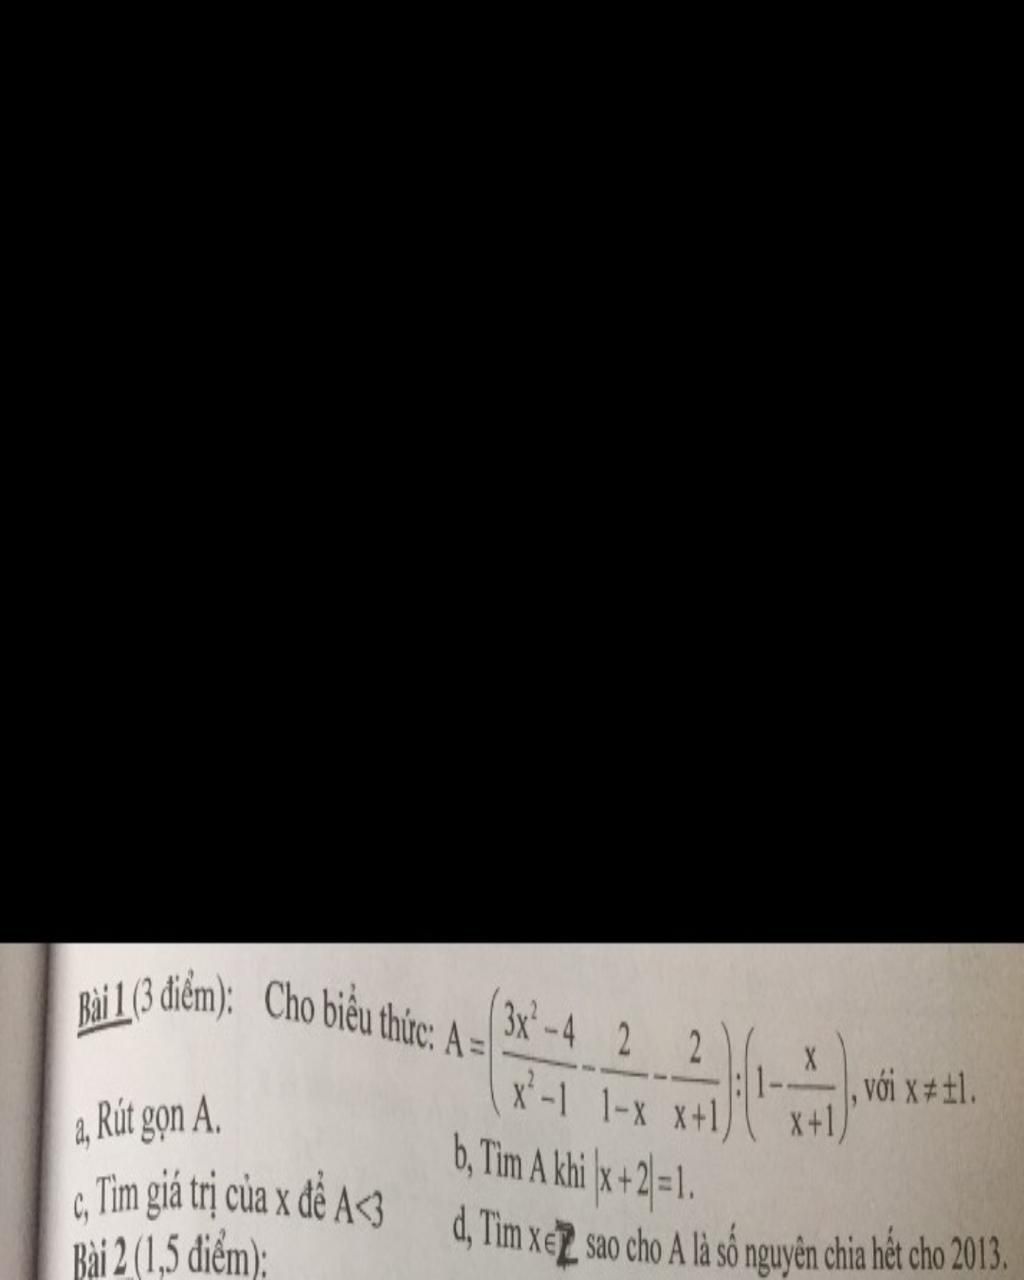 Bài 1 (3 điểm): Cho biểu thức: A = ( (3x² − 4)/(x² − 1) − 2/(1 − x) − 2/(x + 1) ) : ( 1 − x/(x + 1) ), với x ≠ ±1.
a, Rút gọn A.
b, Tìm A khi |x + 2| = 1.
c, Tìm giá trị của x để A<3
d, Tìm x∈Z sao cho A là số nguyên chia hết cho 2013.
Bài 2 (1,5 điểm):